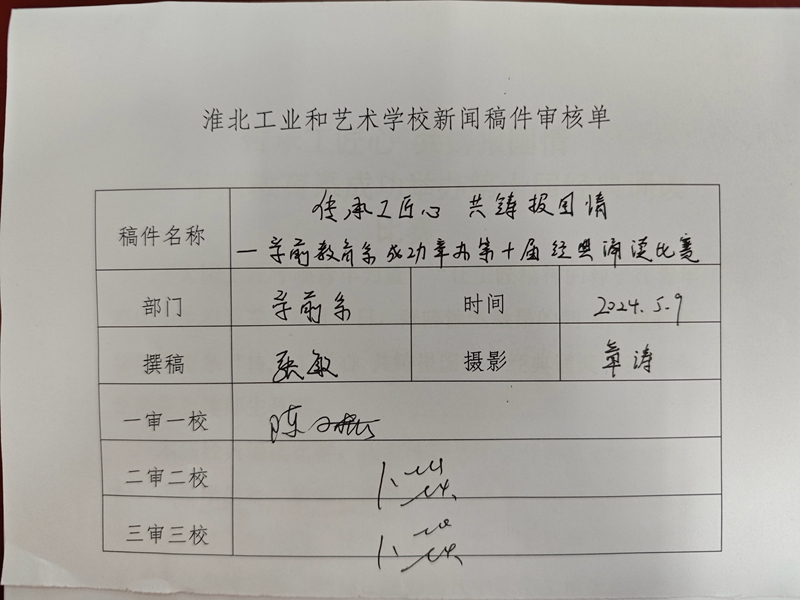 淮北工业和艺术学校新闻稿件审核单
稿件名称
传承工匠心 共铸报国情
—学前教育系成功举办第十届经典诵读比赛
部门 学前系 时间 2024.5.9
撰稿 张敏 摄影 章涛
一审一校 陈
二审二校
三审三校